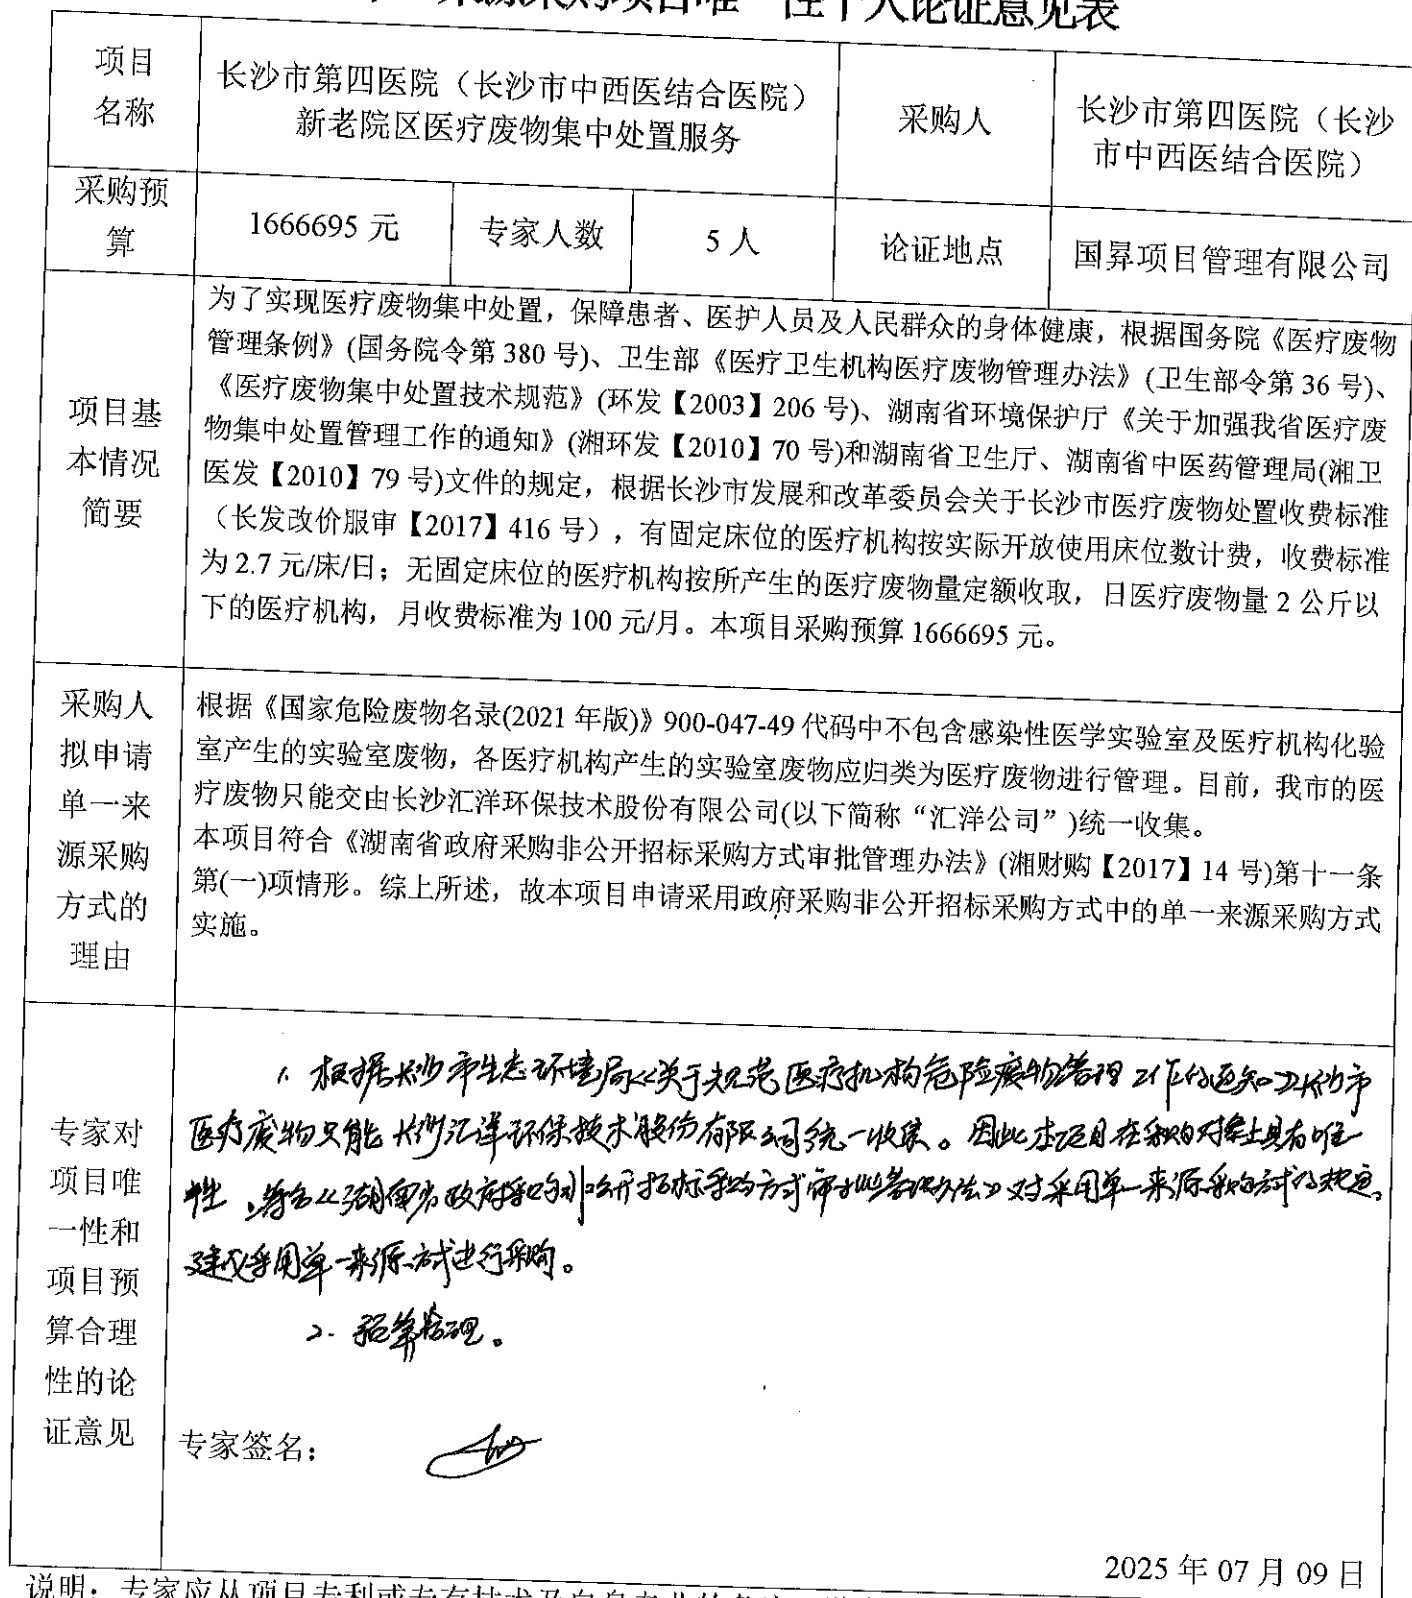 来源采购项目唯一性个人论证意见表
项目
名称
长沙市第四医院（长沙市中西医结合医院）
新老院区医疗废物集中处置服务
采购人
长沙市第四医院（长沙
市中西医结合医院）
采购预
算
1666695 元
专家人数
5 人
论证地点
国昇项目管理有限公司
项目基
本情况
简要
为了实现医疗废物集中处置，保障患者、医护人员及人民群众的身体健康，根据国务院《医疗废物
管理条例》(国务院令第 380 号)、卫生部《医疗卫生机构医疗废物管理办法》(卫生部令第 36 号)、
《医疗废物集中处置技术规范》(环发【2003】206 号)、湖南省环境保护厅《关于加强我省医疗废
物集中处置管理工作的通知》(湘环发【2010】70 号)和湖南省卫生厅、湖南省中医药管理局(湘卫
医发【2010】79 号)文件的规定，根据长沙市发展和改革委员会关于长沙市医疗废物处置收费标准
（长发改价服审【2017】416 号），有固定床位的医疗机构按实际开放使用床位数计费，收费标准
为 2.7 元/床/日；无固定床位的医疗机构按所产生的医疗废物量定额收取，日医疗废物量 2 公斤以
下的医疗机构，月收费标准为 100 元/月。本项目采购预算 1666695 元。
采购人
拟申请
单一来
源采购
方式的
理由
根据《国家危险废物名录(2021 年版)》900-047-49 代码中不包含感染性医学实验室及医疗机构化验
室产生的实验室废物，各医疗机构产生的实验室废物应归类为医疗废物进行管理。目前，我市的医
疗废物只能交由长沙汇洋环保技术股份有限公司(以下简称“汇洋公司”)统一收集。
本项目符合《湖南省政府采购非公开招标采购方式审批管理办法》(湘财购【2017】14 号)第十一条
第(一)项情形。综上所述，故本项目申请采用政府采购非公开招标采购方式中的单一来源采购方式
实施。
专家对
项目唯
一性和
项目预
算合理
性的论
证意见
1. 根据长沙市生态环境局《关于规范医疗机构危险废物管理工作的通知》长沙市
医疗废物只能长沙汇洋环保技术股份有限公司统一收集。因此本项目在采购对象上具有唯一
性，符合《湖南省政府采购非公开招标采购方式审批管理办法》对采用单一来源采购方式的规定，
建议采用单一来源方式进行采购。
2. 预算合理。
专家签名：
2025 年 07 月 09 日
说明：专家应从项目专利或专有技术及自身专业的角度